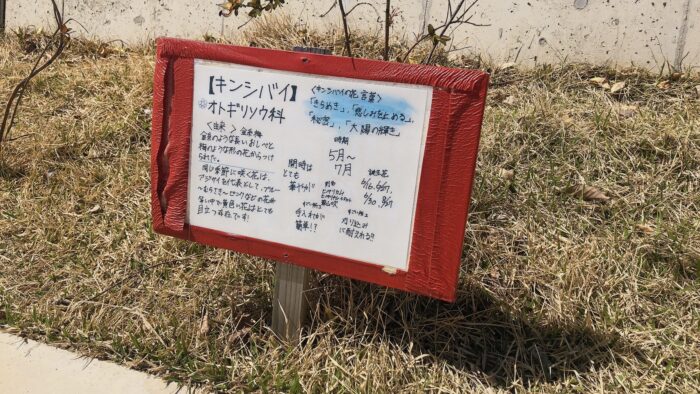 【キンシバイ】
オトギリソウ科
〈由来〉 金糸梅
金糸のような長いおしべと
梅のような形の花からつけ
られた。
同じ季節に咲く花は、
アジサイを代表として、ブルー
〜むらさき〜ピンクなどの花が
多い中で黄色い花はとても
目立つ存在です!
〈キンシバイの花言葉〉
「きらめき」、「悲しみを止める」、
「秘密」、「太陽の輝き」
時期
5月〜
7月
開時は
とても
華やか!!
誕生花
手入れが
簡単!?
刈り込み
に耐えれる!!